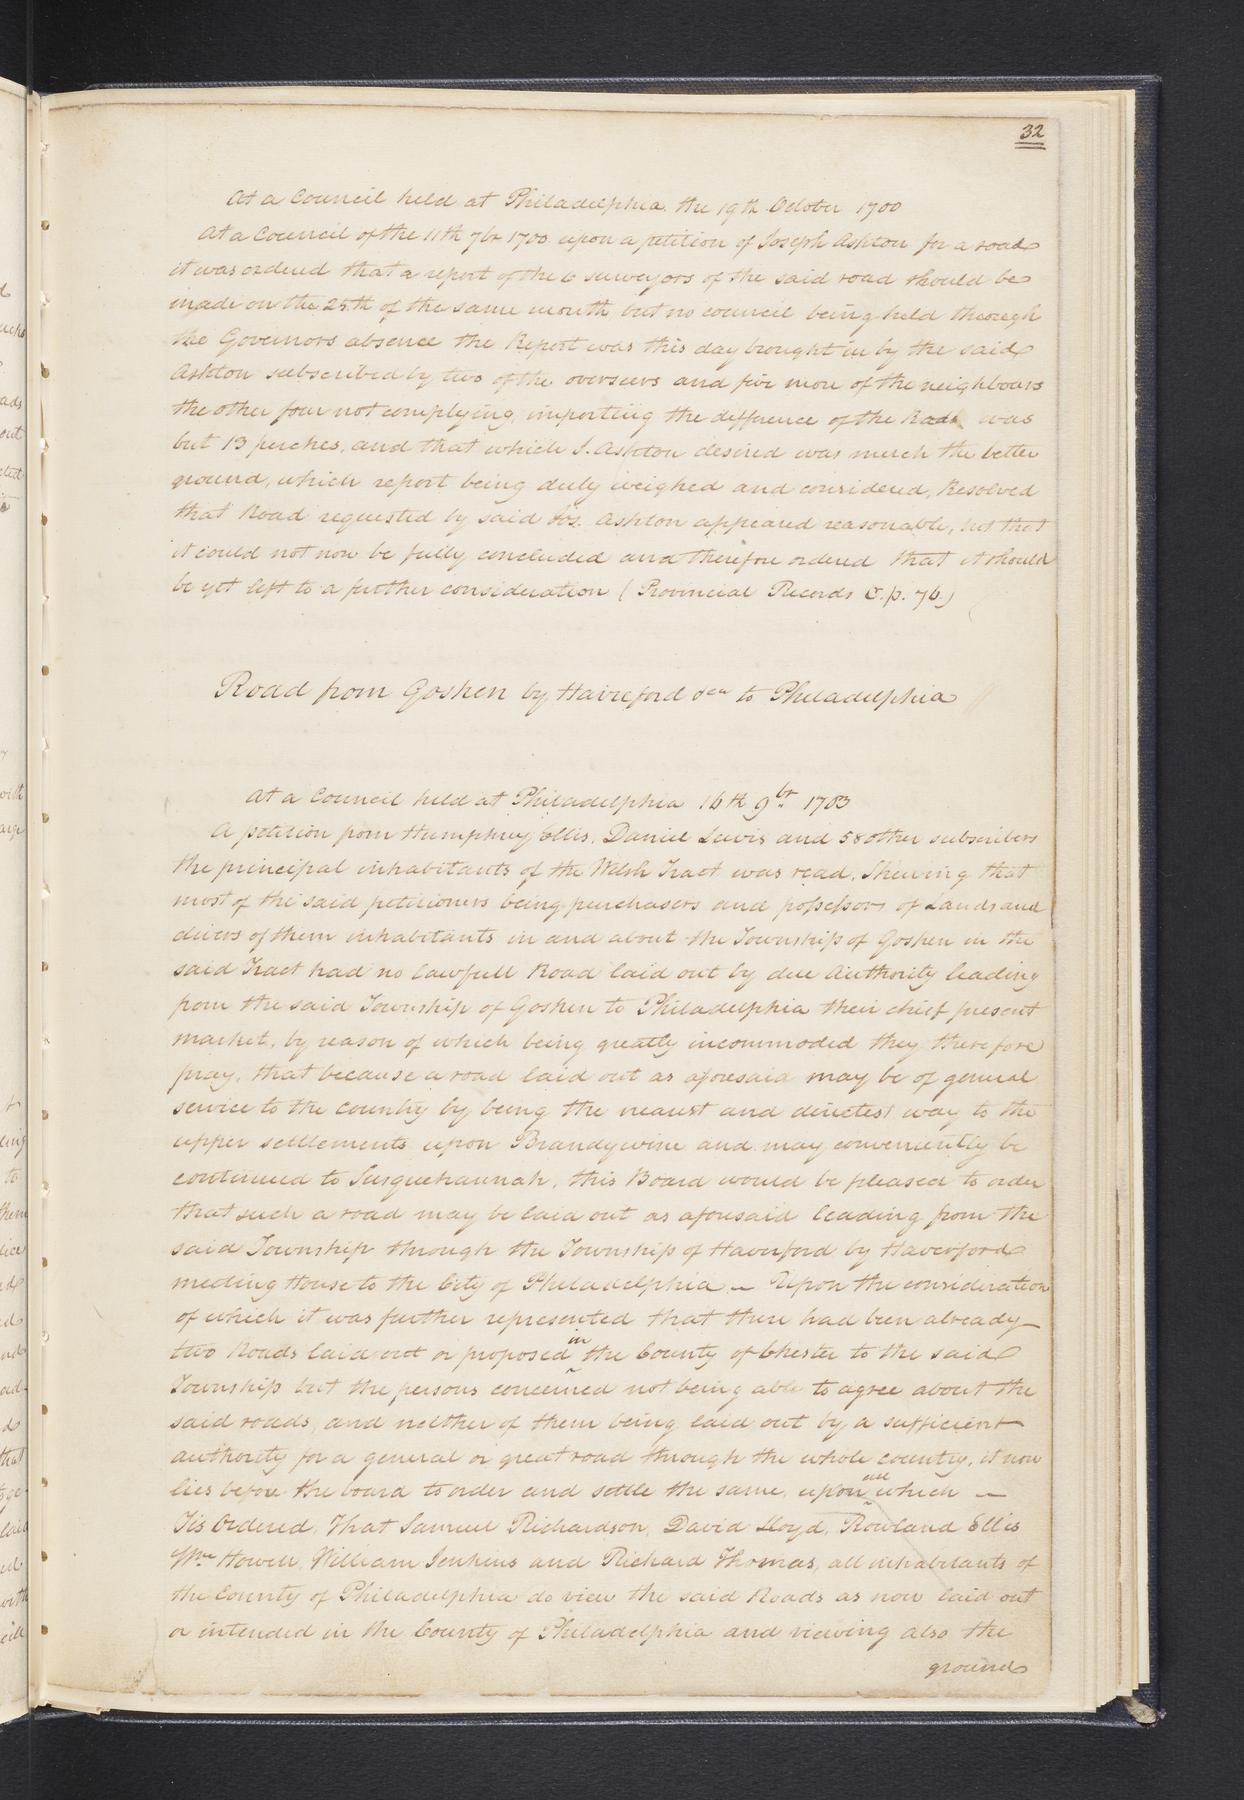 32
At a Council held at Philadelphia the 19th October 1700
At a Council of the 11th 7br 1700 upon a petition of Joseph Ashton for a road
it was ordered that a report of the 6 surveyors of the said road should be
made on the 25th of the same month but no council being held through
the Governors absence the Report was this day brought in by the said
Ashton subscribed by two of the overseers and five more of the neighbours
the other four not complying, importing the difference of the Rads was
but 13 perches, and that which J. Ashton desired was much the better
ground, which report being duly weighed and considered, Resolved
that Road requested by said Jos. Ashton appeared reasonable, but that
it could not now be fully concluded and therefore ordered that it should
be yet left to a further consideration (Provincial Records C. p. 76.)
Road from Goshen by Haireford &ca to Philadelphia
At a Council held at Philadelphia 16th 9br 1703
A petition from Humphrey Ellis, Daniel Lewis and 58 other subscribers
the principal inhabitants of the Welsh Tract was read, Shewing that
most of the said petitioners being purchasers and possessors of Lands and
divers of them inhabitants in and about the Township of Goshen in the
said Tract had no Lawfull Road laid out by due Authority leading
from the said Township of Goshen to Philadelphia their chief present
market, by reason of which being greatly incommoded they therefore
pray, that because a road laid out as aforesaid may be of general
service to the Country by being the nearest and directest way to the
upper settlements upon Brandywine and may conveniently be
continued to Susquehannah, this Board would be pleased to order
that such a road may be laid out as aforesaid leading from the
said Township through the Township of Haverford by Haverford
meeting House to the City of Philadelphia — Upon the consideration
of which it was further represented that there had been already
two Roads laid out or proposed in the County of Chester to the said
Township but the persons concerned not being able to agree about the
said roads, and neither of them being laid out by a sufficient
authority for a general or great road through the whole country, it now
lies before the board to order and settle the same, upon all which —
Tis Ordered, That Samuel Richardson, David Lloyd, Rowland Ellis
Wm Howell, William Jenkins and Richard Thomas, all inhabitants of
the County of Philadelphia do view the said Roads as now laid out
or intended in the County of Philadelphia and viewing also the
ground